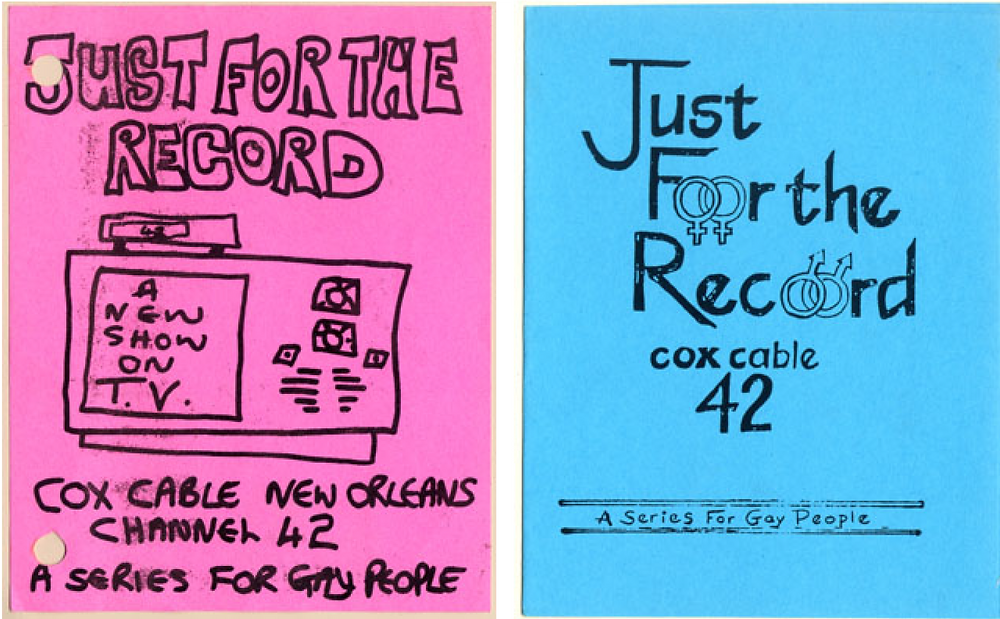 JUST FOR THE
RECORD
42
A
NEW
SHOW
ON
T.V.
COX CABLE NEW ORLEANS
CHANNEL 42
A SERIES FOR GAY PEOPLE
Just
For the
Record
cox cable
42
A Series For Gay People